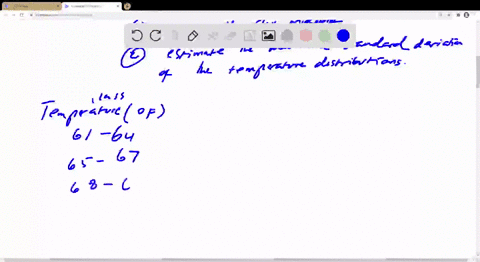 ② estimate the standard deviation
of the temperature distributions.
class
Temperature (OF)
61-64
65-67
68-6